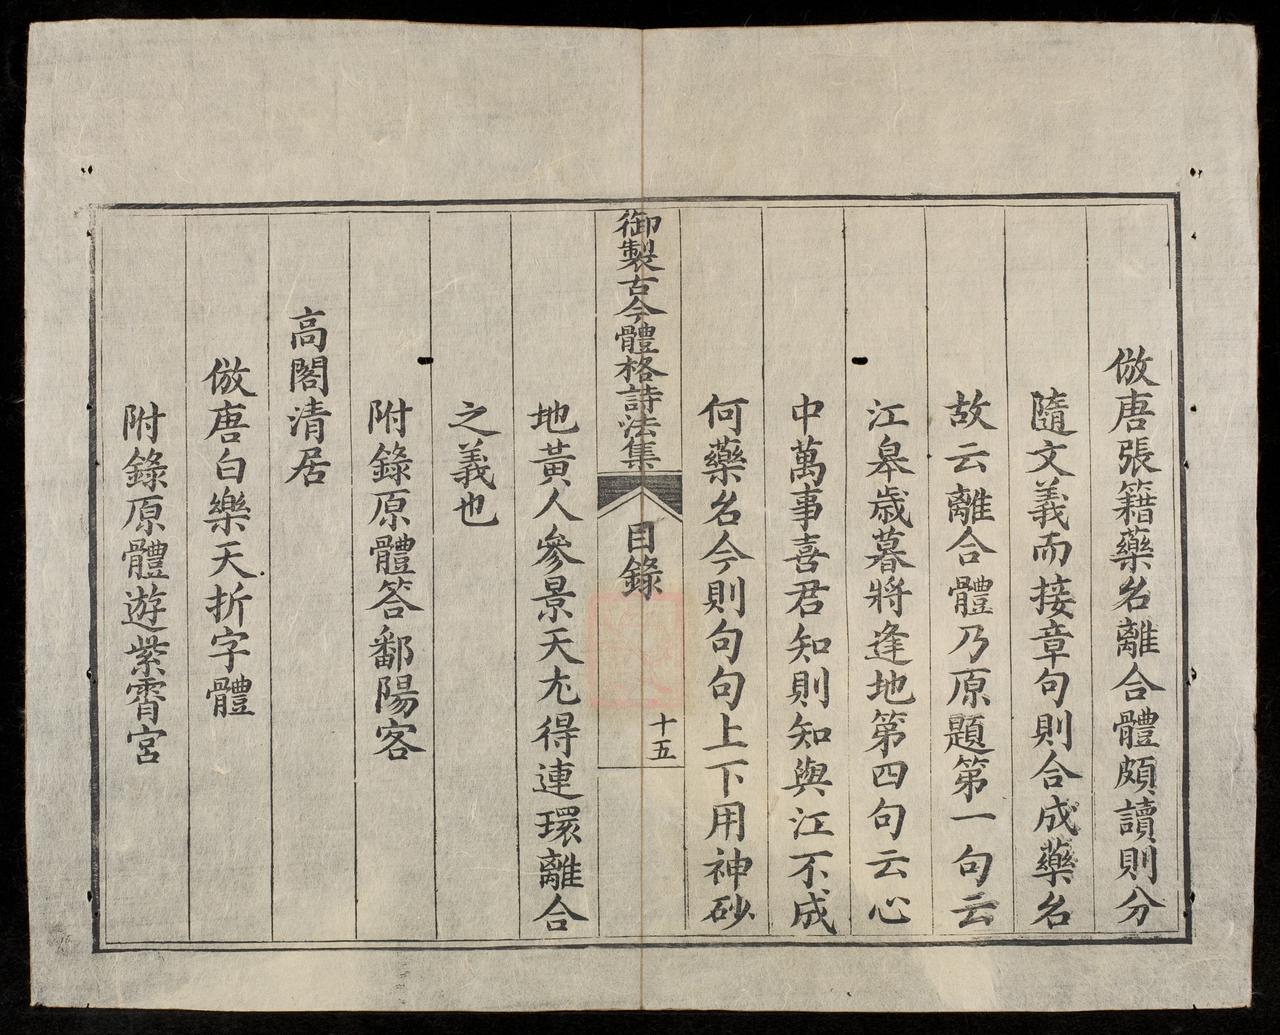 倣唐張籍藥名離合體頗讀則分
隨文義而接章句則合成藥名
故云離合體乃原題第一句云
江皋歲暮將逢地第四句云心
中萬事喜君知則知與江不成
何藥名今則句句上下用神砂
御製古今體格詩法集
目錄
十五
地黃人參景天尤得連環離合
之義也
附錄原體答鄱陽客
高閣清居
倣唐白樂天折字體
附錄原體遊紫霄宮